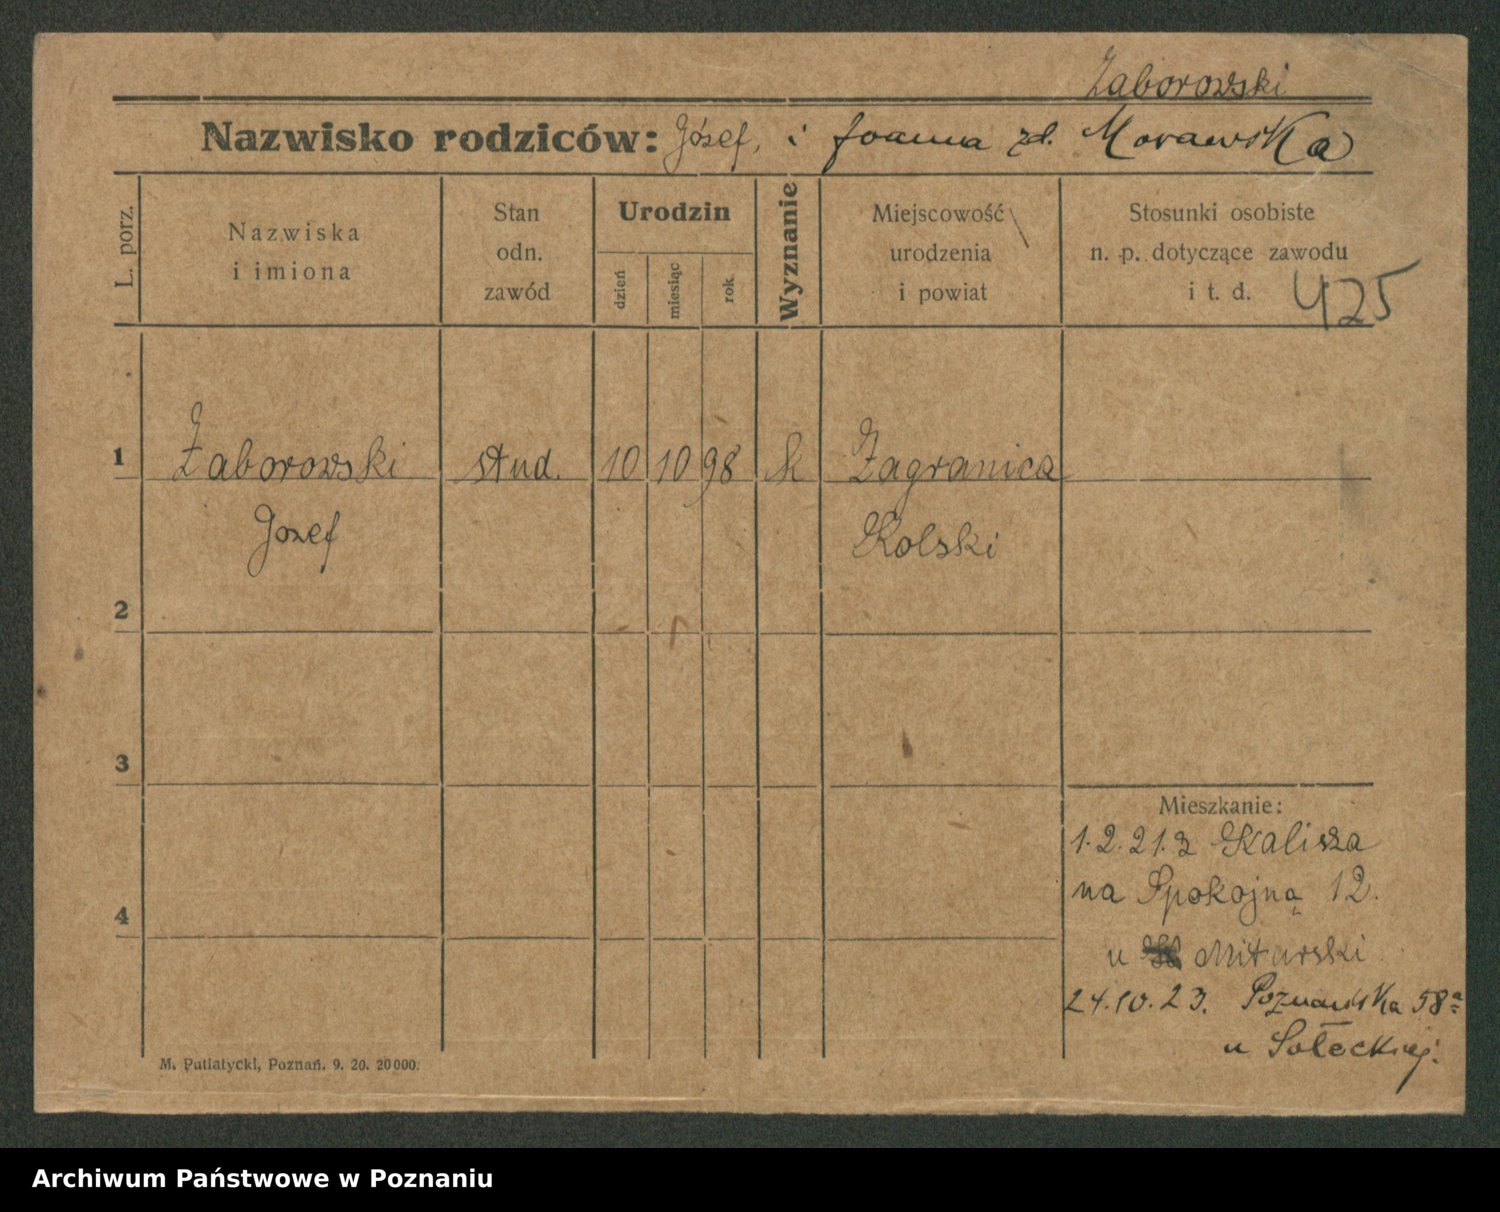 Zaborowski
Nazwisko rodziców: Józef, i Joanna zd. Morawska
L. porz.
Nazwiska
i imiona
Stan
odn.
zawód
Urodzin
dzień
miesiąc
rok
Wyznanie
Miejscowość
urodzenia
i powiat
Stosunki osobiste
n. p. dotyczące zawodu
i t. d.
425
1 Zaborowski stud. 10 10 98 k Zagranica
Józef Kolski
2
3
4
Mieszkanie:
1.2.21. z Kalisza
na Spokojną 12.
u Miturski
24.10.23. Poznańska 58a
u Sołeckiej.
M. Putiatycki, Poznań. 9. 20. 20000.
Archiwum Państwowe w Poznaniu